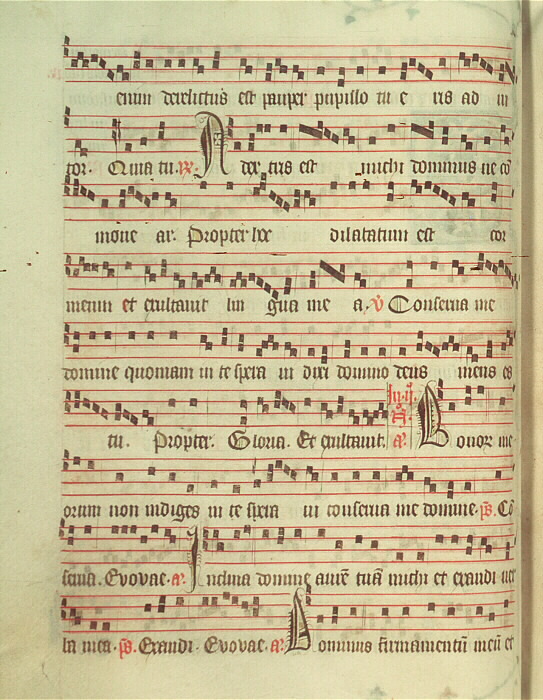 enim derelictus est pauper pupillo tu e ris ad iu
tor. Quia tu. R. A dex tris est michi dominus ne co
move ar. Propter hoc dilatatum est cor
meum et exultavit lin gua me a. V Conserva me
domine quoniam in te spera vi dixi domino deus meus es
tu. Propter. Gloria. Et exultavit. a. Bonorum me
orum non indiges in te spera vi conserva me domine. ps. Co
serva. Evovae. a. Inclina domine aurē tuā michi et exaudi ver
ba mea. ps. Exaudi. Evovae. a. Dominus firmamentū meū et